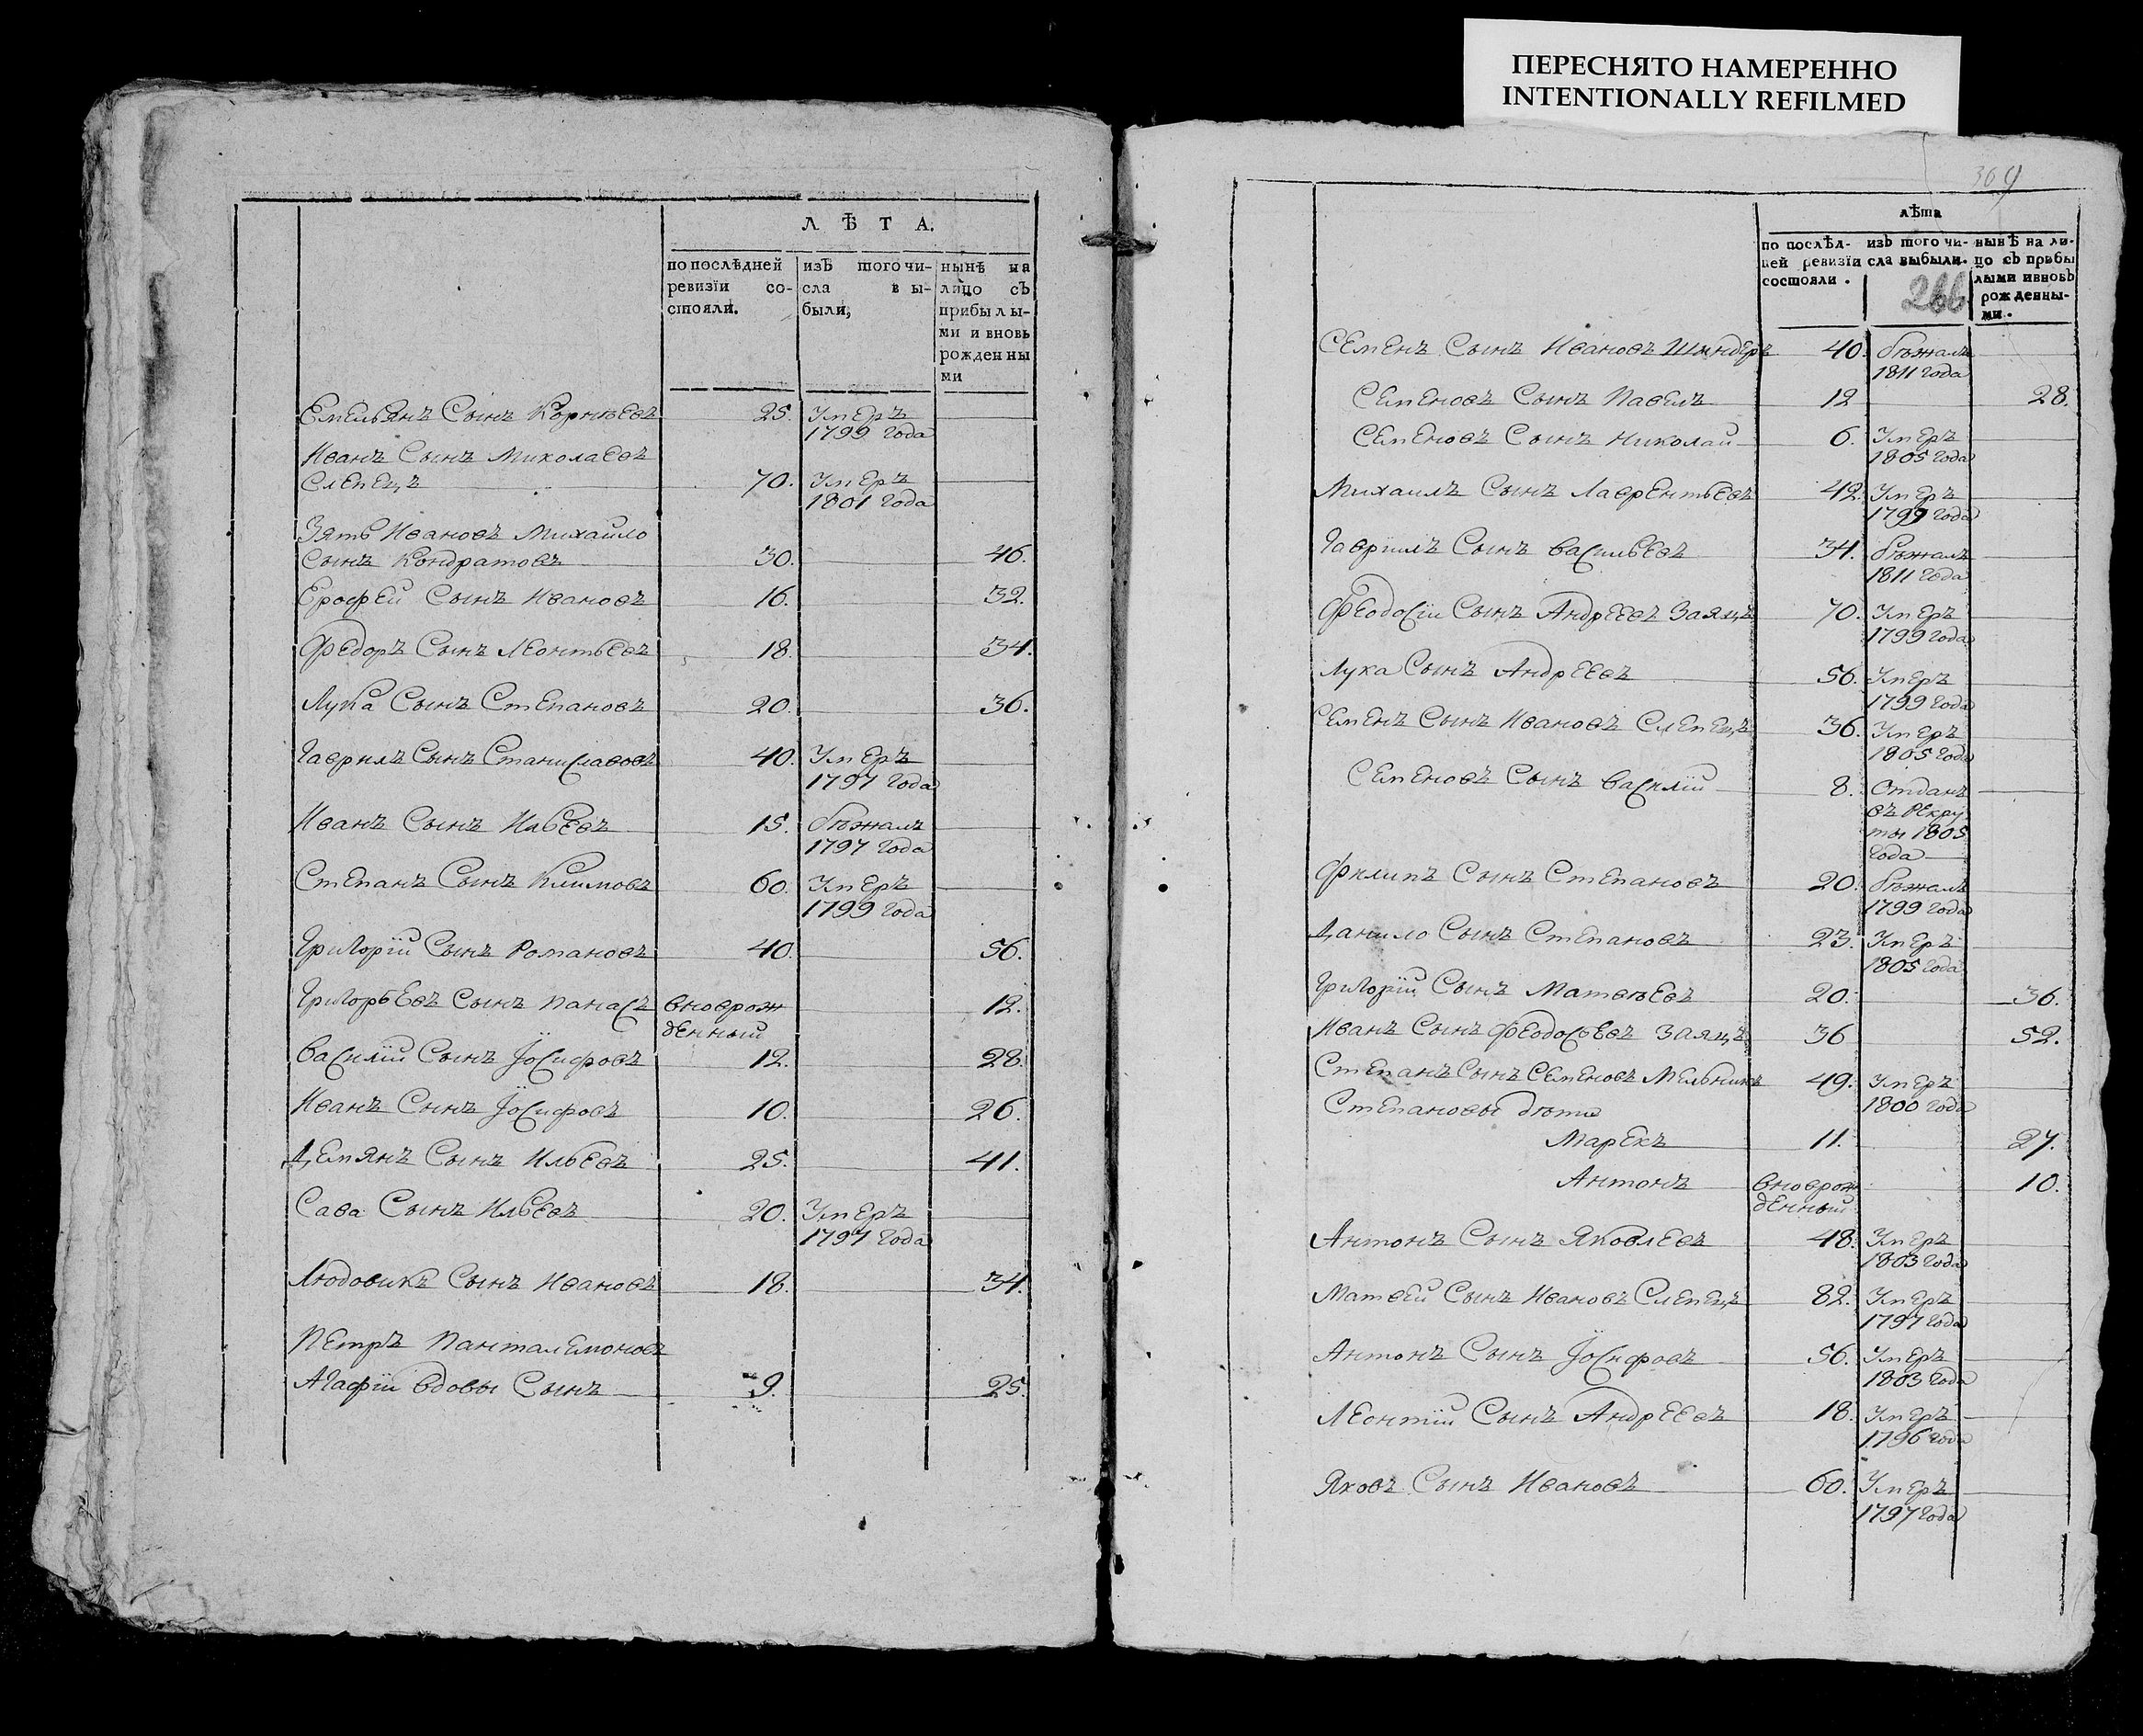 ПЕРЕСНЯТО НАМЕРЕННО
INTENTIONALLY REFILMED
Л Ѣ Т А.
по послѣдней ревизїи со-стояли.
изъ того чи-сла вы-были,
нынѣ на лицо съ прибылы-ми и вновь рожденны ми
Емельянъ Сынъ Корнѣевъ 25. Умеръ
1799 года
Иванъ Сынъ Миколаевъ
Слепецъ 70. Умеръ
1801 года
Зять Ивановъ Михайло
Сынъ Кондратовъ 30. 46.
Ерофей Сынъ Ивановъ 16. 32.
Федоръ Сынъ Леонтьевъ 18. 34.
Лука Сынъ Степановъ 20. 36.
Гаврилъ Сынъ Станиславовъ 40. Умеръ
1797 года
Иванъ Сынъ Ильевъ 15. бѣжалъ
1797 года
Степанъ Сынъ Климовъ 60. Умеръ
1799 года
Григорїй Сынъ Романовъ 40. 56.
Григорьевъ Сынъ Панасъ вноврож 12.
денный
Василїй Сынъ Іосифовъ 12. 28.
Иванъ Сынъ Іосифовъ 10. 26.
Демянъ Сынъ Ильевъ 25. 41.
Сава Сынъ Ильевъ 20. Умеръ
1797 года
Людовикъ Сынъ Ивановъ 18. 34.
Петръ Панталемоновъ
Агафїи вдовы Сынъ 9. 25.
369
лѣта
по послѣд-ней ревизїи состояли.
изъ того чи-сла выбыли.
нынѣ на ли-цо съ прибы лыми ивновь рожденны-ми.
266
Семенъ Сынъ Ивановъ Шиндеръ 40. бѣжалъ
1811 года
Семеновъ Сынъ Павелъ 12 28.
Семеновъ Сынъ Николай 6. Умеръ
1805 года
Михаилъ Сынъ Лаврентьевъ 42. Умеръ
1799 года
Гаврїилъ Сынъ Васильевъ 34. бѣжалъ
1811 года
Феодосїи Сынъ Андреевъ Заяцъ 70. Умеръ
1799 года
Лука Сынъ Андреевъ 56. Умеръ
1799 года
Семенъ Сынъ Ивановъ Слепецъ 36. Умеръ
1805 года
Семеновъ Сынъ Василїй 8. Отданъ
въ рекру
ты 1805
года
Филипъ Сынъ Степановъ 20. бѣжалъ
1799 года
Данило Сынъ Степановъ 23. Умеръ
1805 года
Григорїй Сынъ Матвѣевъ 20. 36.
Иванъ Сынъ Феодосьевъ Заяцъ 36 52.
Степанъ Сынъ Семеновъ Мельникъ 49. Умеръ
1800 года
Степановы дѣти
Марекъ 11. 27.
Антонъ вноврож 10.
денный
Антонъ Сынъ Яковлевъ 48. Умеръ
1803 года
Матвей Сынъ Ивановъ Слепецъ 82. Умеръ
1797 года
Антонъ Сынъ Іосифовъ 56. Умеръ
1803 года
Леонтїй Сынъ Андреевъ 18. Умеръ
1796 года
Яковъ Сынъ Ивановъ 60. Умеръ
1797 года